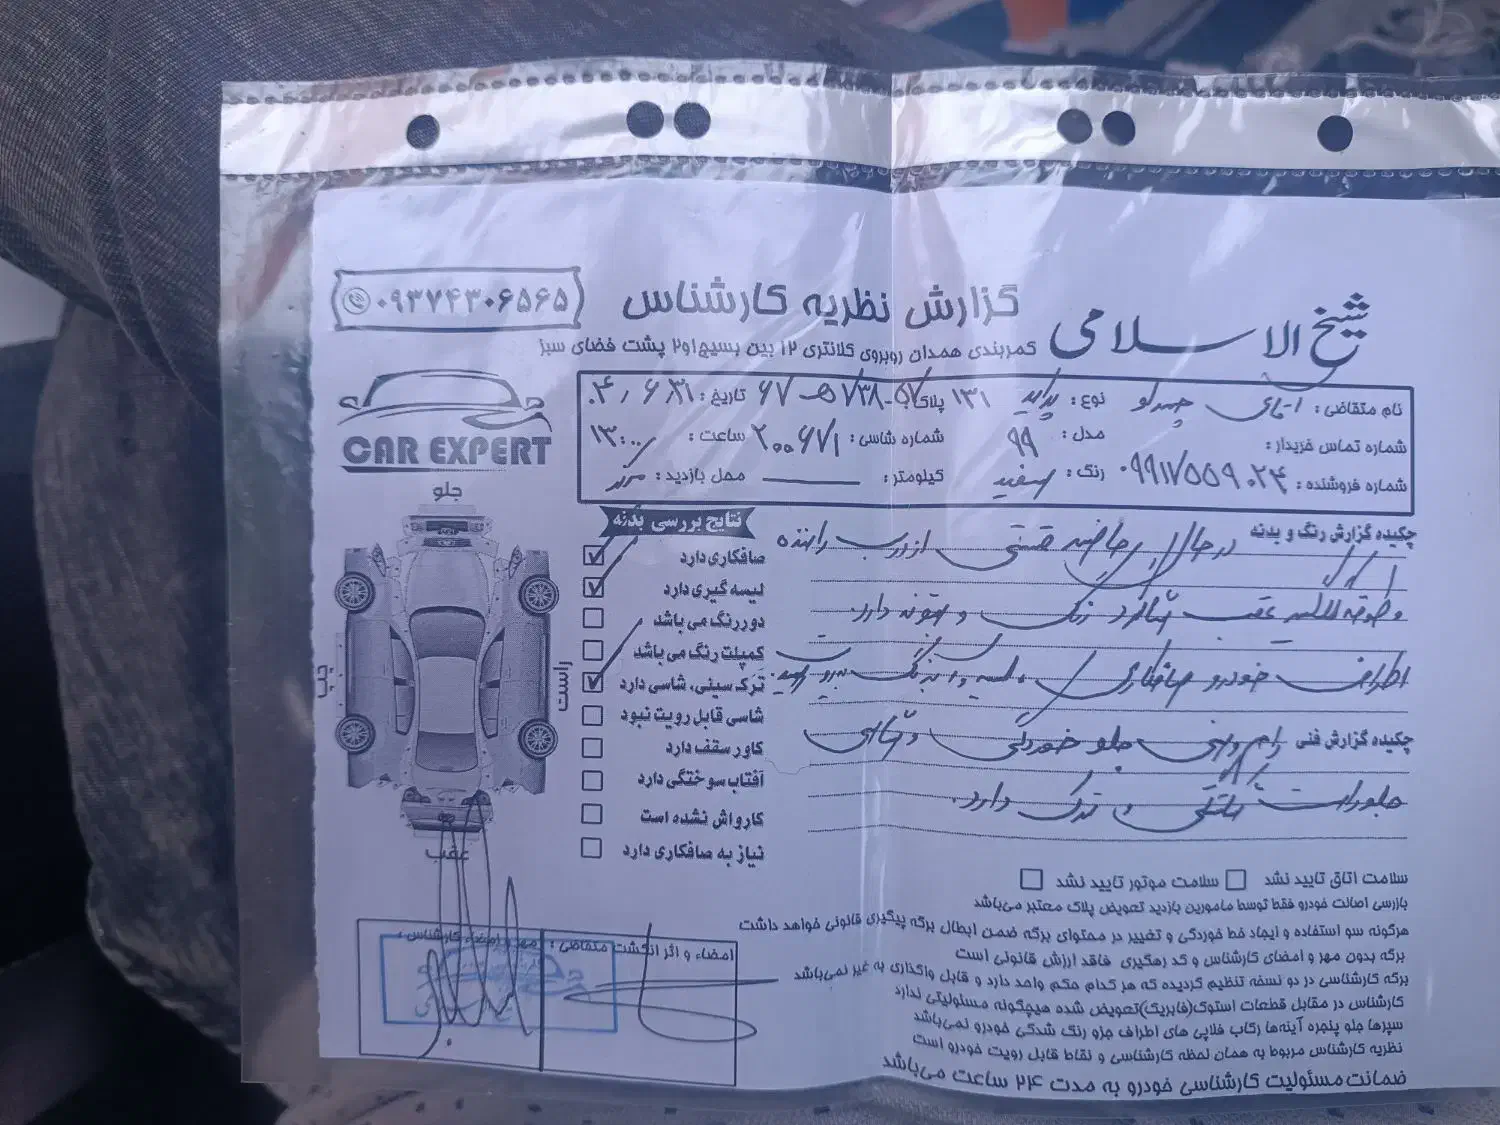 گزارش نظریه کارشناس
شیخ الاسلامی
۰۹۳۷۴۳۰۶۵۶۵
کمربندی همدان روبروی کلانتری ۱۲ بین بسیج۱و۲ پشت فضای سبز
CAR EXPERT
نام متقاضی : آقای
نوع : پراید ۱۳۱
پلاک:
تاریخ :
شماره تماس خریدار :
مدل : ۹۹
شماره شاسی : ۲۰۰۶۷۱
ساعت : ۱۳:۰۰
شماره فروشنده : ۰۹۹۱۷۵۵۹۰۲۴
رنگ : سفید
کیلومتر :
محل بازدید :
جلو
چپ
راست
عقب
نتایج بررسی بدنه
صافکاری دارد
لیسه گیری دارد
دوررنگ می باشد
کمپلت رنگ می باشد
ترک سینی، شاسی دارد
شاسی قابل رویت نبود
کاور سقف دارد
آفتاب سوختگی دارد
کارواش نشده است
نیاز به صافکاری دارد
چکیده گزارش رنگ و بدنه در حال حاضر قسمتی از درب راننده
و عقب رنگ و بتونه دارد.
اطراف خودرو صافکاری
چکیده گزارش فنی جلو خوردگی و
و ترک دارد.
سلامت اتاق تایید نشد
سلامت موتور تایید نشد
بازرسی اصالت خودرو فقط توسط مامورین بازدید تعویض پلاک معتبر می‌باشد
هرگونه سو استفاده و ایجاد خط خوردگی و تغییر در محتوای برگه ضمن ابطال برگه پیگیری قانونی خواهد داشت
برگه بدون مهر و امضای کارشناس و کد رهگیری فاقد ارزش قانونی است
برگه کارشناسی در دو نسخه تنظیم گردیده که هر کدام حکم واحد دارد و قابل واگذاری به غیر نمی‌باشد
کارشناس در مقابل قطعات استوک(فابریک)تعویض شده هیچگونه مسئولیتی ندارد
سپرها جلو پنجره آینه‌ها رکاب فلاپی های اطراف جزو رنگ شدگی خودرو نمی‌باشد
نظریه کارشناس مربوط به همان لحظه کارشناسی و نقاط قابل رویت خودرو است
ضمانت مسئولیت کارشناسی خودرو به مدت ۲۴ ساعت می‌باشد
امضاء و اثر انگشت متقاضی :
مهر و امضاء کارشناس :